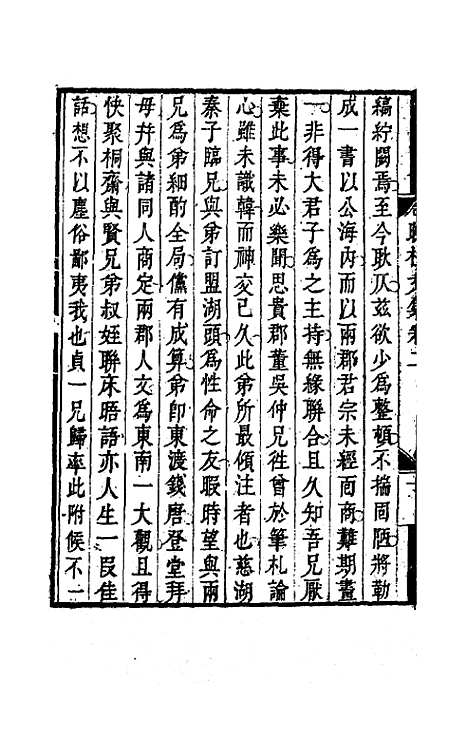 縞紵闕焉至今耿仄茲欲少為整頓不揣固陋將勒
成一書以公海內而以兩郡君宗未經面商難期畫
一非得大君子為之主持無緣聯合且久知吾兄厭
棄此事未必樂聞思貴郡董吳仲兄徃曾於筆札論
心雖未識韓而神交已久此弟所最傾注者也慈湖
秦子臨兄與弟訂盟湖頭為性命之友暇時望與兩
兄為弟細酌全局儻有成算弟即東渡錢唐登堂拜
毋幷與諸同人商定兩郡人文為東南一大觀且得
快聚桐齋與賢兄弟叔姪聯床晤語亦人生一叚佳
話想不以塵俗鄙夷我也貞一兄歸率此附候不一